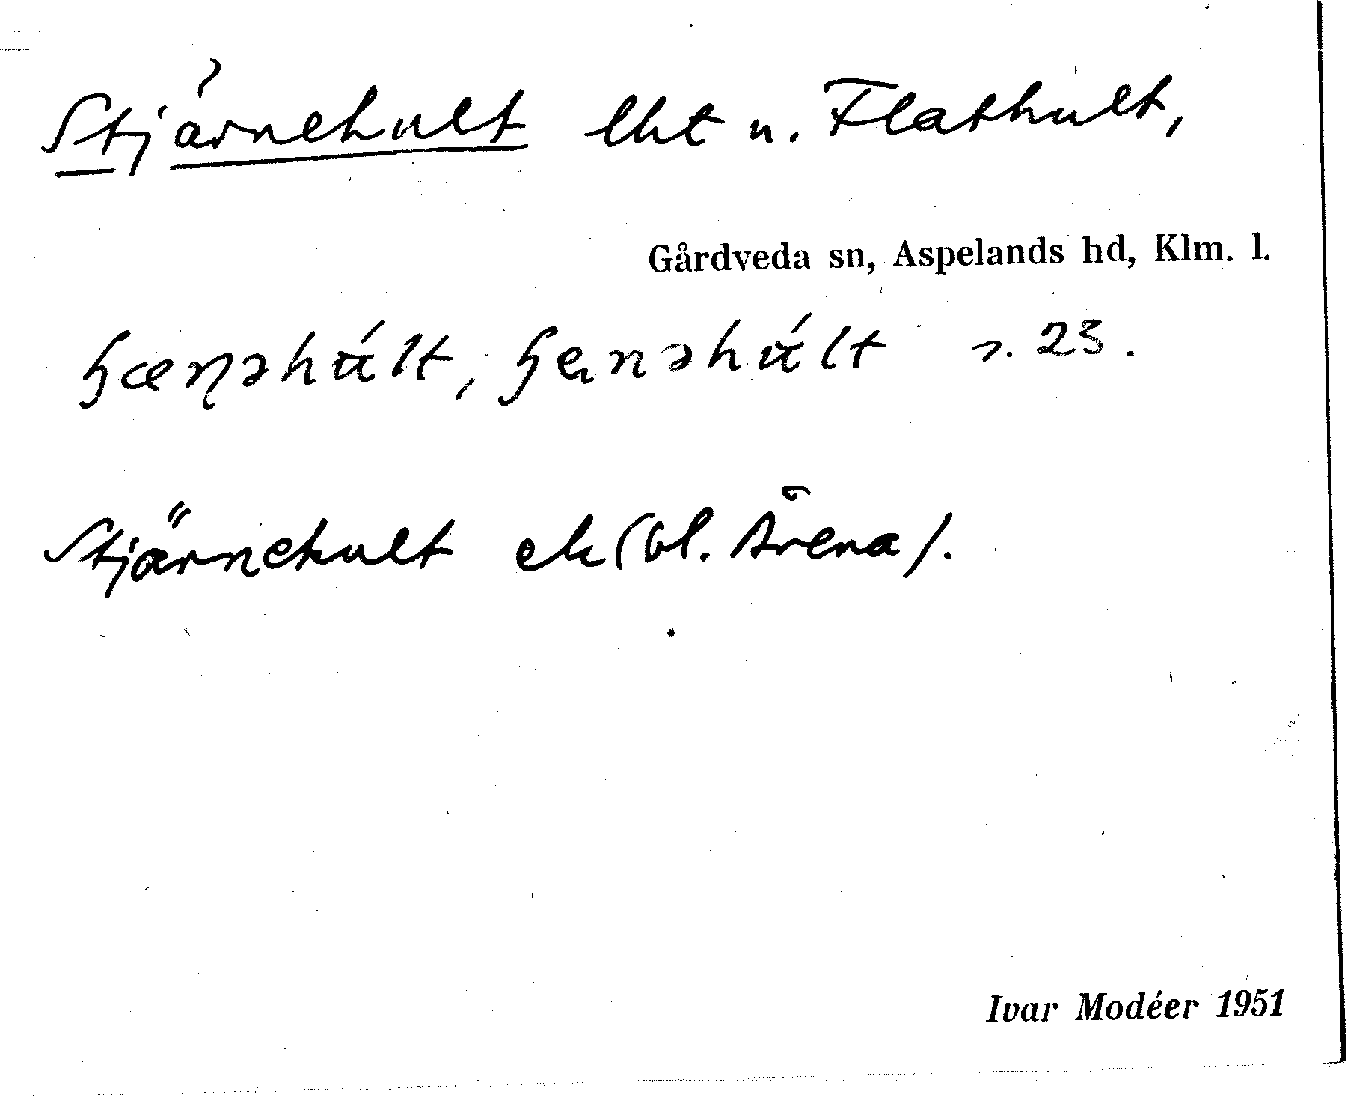 Stjärnehult lht u. Flathult,
Gårdveda sn, Aspelands hd, Klm. l.
s. 23.
Stjärnehult ek (bl. Ärena).
Ivar Modéer 1951